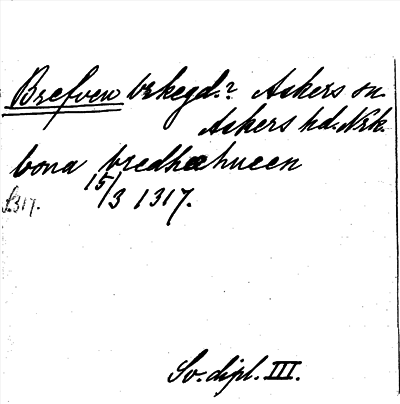 Brefven brkegd.? Askers sn.
Askers hd. Nrk.
bona bredhæhueen
15/3 1317.
S. 317.
Sv. dipl. III.